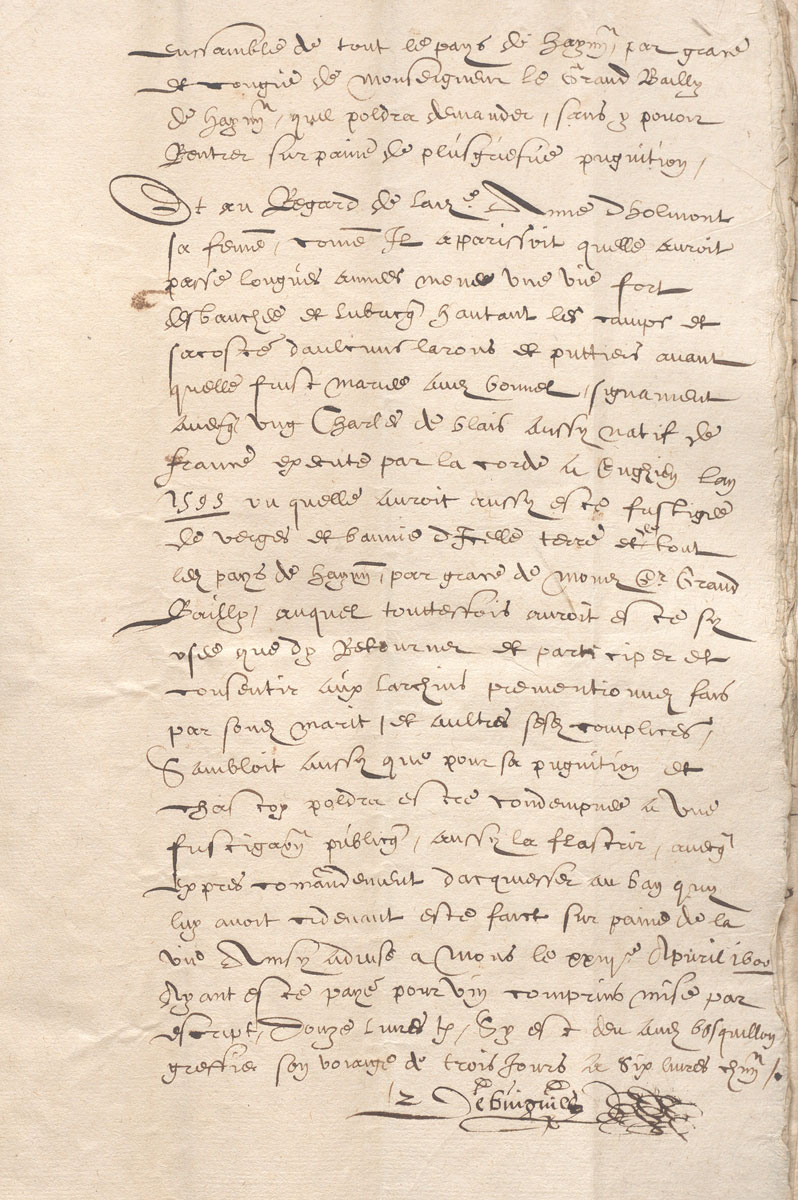 ensamble de tout le pays de Haynn, par grace
et congie de Monseigneur le Grand Bailly
de Haynn, quil poldra demander, sans y povoir
Rentrer sur paine de plus griefve pugnition,
Et au Regard de lad.e Anne dholmont
sa feme, come Il apparissoit quelle auroit
passe longues annees mene une vie fort
desbauchee et lubricq hantant les camps et
sacoste daulcuns larons et puttiers avant
quelle fuist mariee avecq bonnel, signament
avecq ung Charles de blais aussy natif de
france execute par la corde a Enghien lan
1595 ou quelle auroit aussy este fustigee
de verges et bannie dIcelle terre et de tout
led pays de Haynn, par grace de Mond Sr Grand
Bailly, auquel touttesfois auroit este sy
osee que dy Retourner et participer et
consentir aux larchins prementionnez fais
par sond marit, et aultres sesd complices,
Sambloit aussy que pour sa pugnition et
chastoy poldra estre condempnee a une
fustigaon publicq, aussy la flastrir, avecq
expres comandement dacquiesser au ban quy
luy avoit cidevant este faict sur paine de la
vie Ainsy advise a Mons le xxiiie Apvril 1600
Ayant este paye pour vin comprins mise par
escript, Douze livres tz, Sy est deu aud bosquillon
greffier son voiaige de trois Jours a Six livres chun